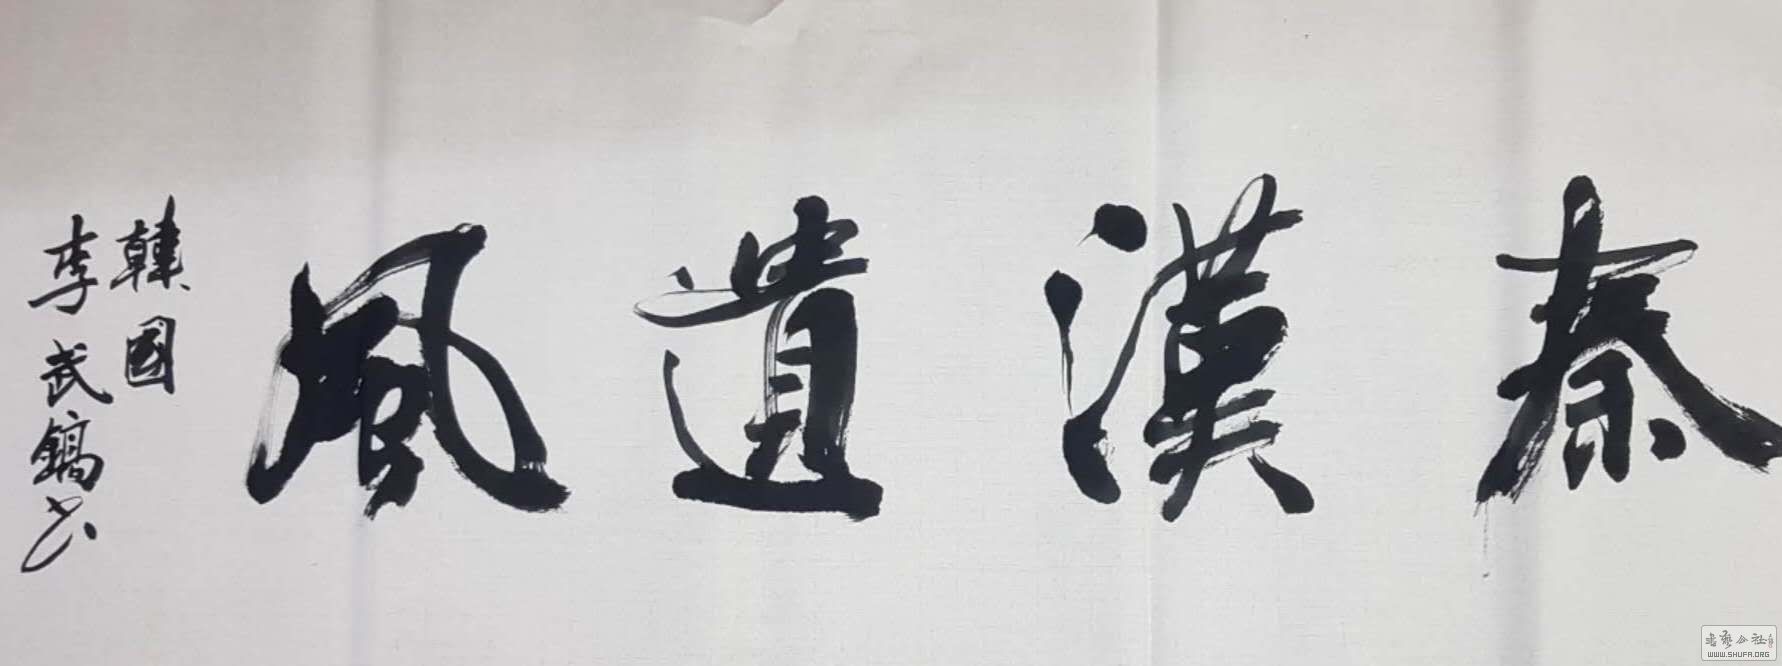 秦漢遺風
韓國
李武鎬书
书艺公社
WWW.SHUFA.ORG